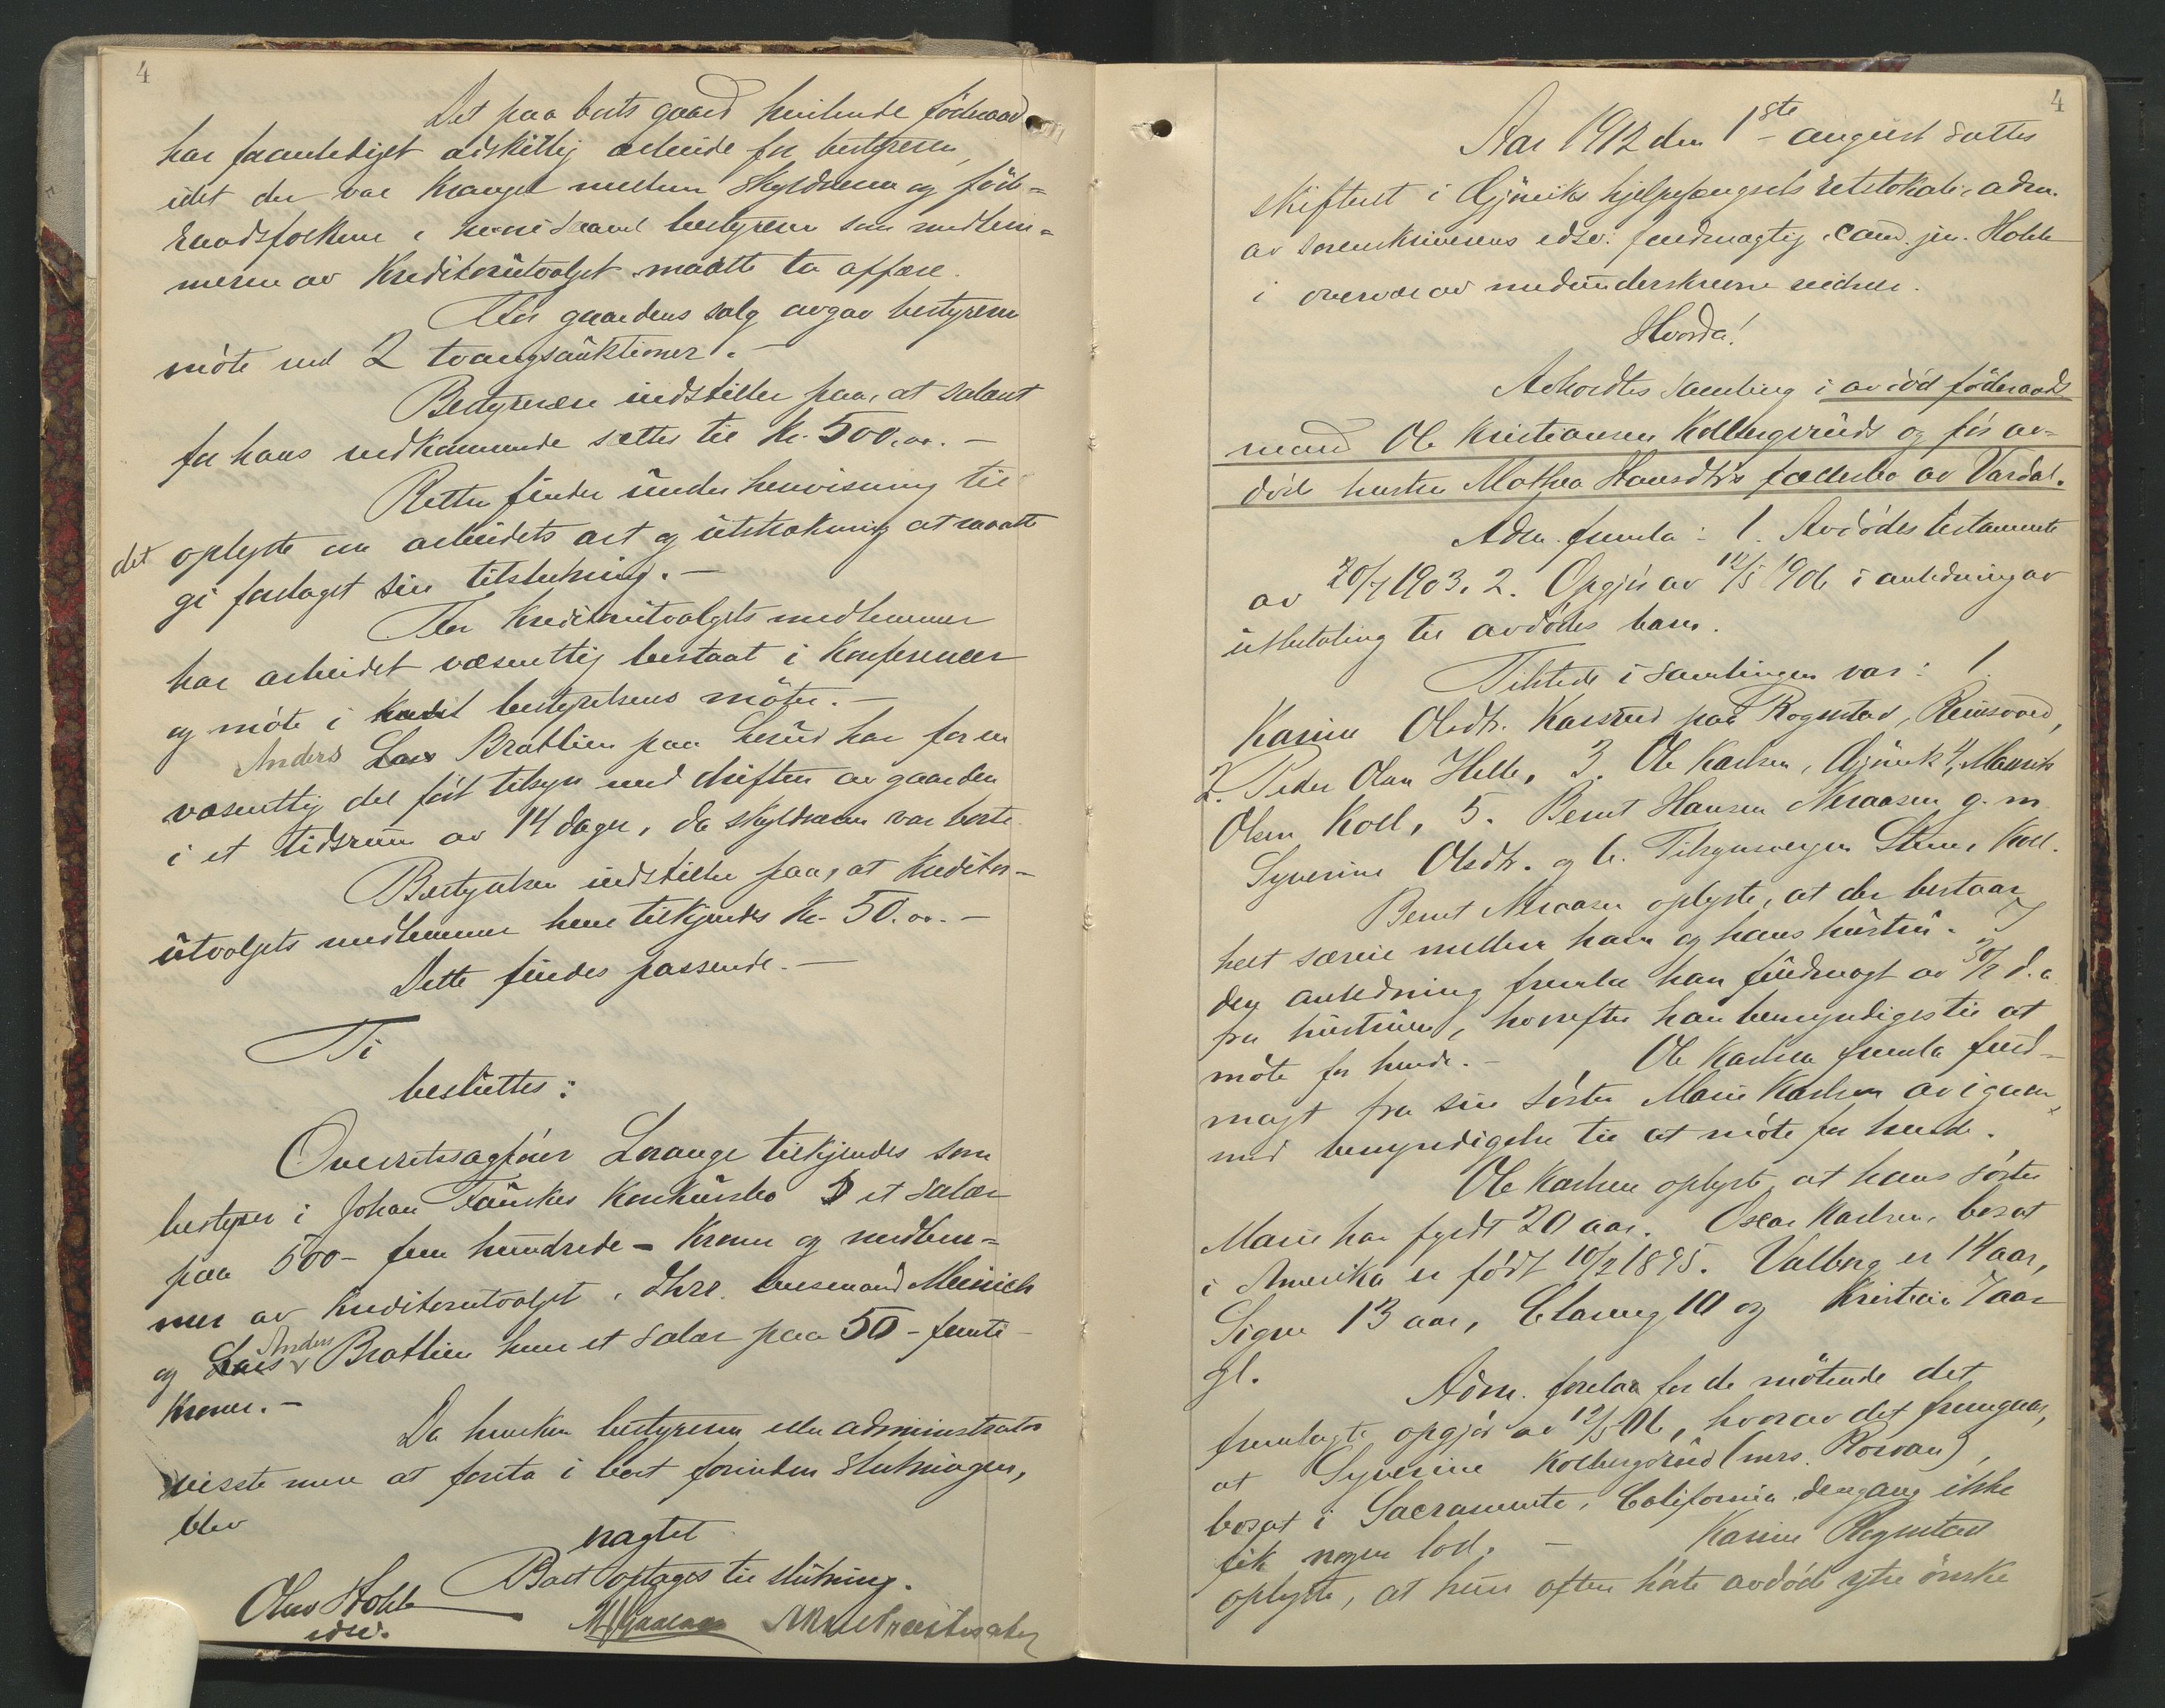 4
Det paa boets gaard hvilende föderaad
har foranlediget adskillig arbeide for bestyreren,
idet der var krangel mellem skyldneren og föde-
raadsfolkene i hvori saavel bestyreren som medlem-
merne av kreditorutvalget maatte ta affære.
Før gaardens salg avgav bestyreren
møte ved 2 tvangsauktioner. —
Bestyrelsen indstiller paa, at salært
for hans vedkommende sættes til kr. 500.00. —
Retten finder under henvisning til
det oplyste om arbeidets art og utstrækning at maatte
gi forslaget sin tilslutning. —
For kreditorutvalgets medlemmer
har arbeidet væsentlig bestaat i konferencer
og møte i bestyrelsens møter. —
Anders Lars Brattlien paa har for en
væsentlig del ført tilsyn med driften av gaarden
i et tidsrum av 14 dager, da skyldneren var borte.
Bestyrelsen indstiller paa, at kreditor-
utvalgets medlemmer hver tilkjendes kr. 50.00. —
Dette findes passende. —
Ti
besluttes:
Overretssagfører Lorange tilkjendes som
bestyrer i Johan Fauskes konkursbo et salær
paa 500 - fem hundrede - kroner og medlem-
mer av kreditorutvalget, dhrr. Meinich
og Lars Anders Brattlien hver et salær paa 50 - femti -
kroner. —
Da hverken bestyreren eller administrator
visste mere at foreta i boet forinden slutningen,
blev
vragtet
Boet optages til slutning.
Olav Holt
edsv.
4
Aar 1912 den 1ste august sattes
skifteret i Gjöviks hjelpefængsels retslokale, adm.
av sorenskriverens edsv. fuldmægtig cand. jur. Holt
i overvær av medunderskrevne vidner.
Hvorda!
Avholdtes samling i avdød föderaads-
mand Ole Kristiansen Kolbergsruds og før av-
døde hustru Mathea Hansdtr's fællesbo av Vardal.
Adm. fremla: 1. Avdødes testamente
av 20/7 1903. 2. Opgjør av 12/5 1906 i anledning av
utbetaling til avdødes barn.
Tilstede i samlingen var: 1.
Karine Olsdtr. paa Rognstad, Reinsvold,
2. Peder Olsen Helle, 3. Ole Karlsen, Gjøvik 4,
Olsen Koll, 5. Bernt Hansen Meraasen g. m.
Syverine Olsdtr. og 6. Tilsynsverge Koll.
Bernt Meraasen oplyste, at der bestaar
helt særeie mellem ham og hans hustru. I
den anledning fremla han fuldmagt av 30/7 d.a.
fra hustruen, hvorefter han bemyndiges til at
møte for hende. — Ole Karlsen fremla fuld-
magt fra sin søster Marie Karlsen av igaar,
med bemyndigelse til at møte for hende.
Ole Karlsen oplyste, at hans søster
Marie har fyldt 20 aar. Oscar Karlsen, bosat
i Amerika er født 10/2 1895. Valborg er 14 aar,
Signe 13 aar, 10 og Kristian 7 aar
gl.
Adm. forela for de møtende det
fremlagte opgjør av 12/5 06, hvorav det fremgaar,
at Syverine Kolbergsrud (mrs. Rowan),
bosat i Sacramento, California dengang ikke
fik nogen lod. — Karine Rognstad
oplyste, at hun ofte hørte avdøde ytre ønske